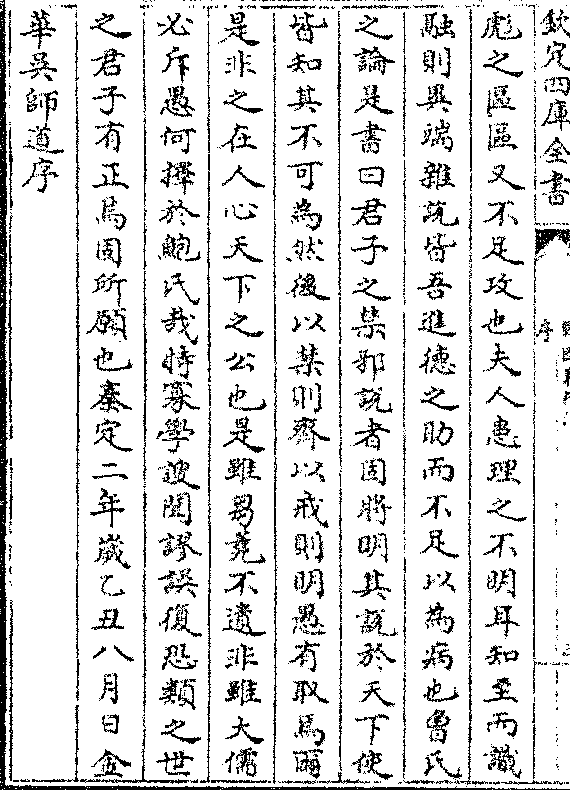 欽定四庫全書
序
彪之區區又不足攻也夫人患理之不明耳知至而識
融則異端雜說皆吾進德之助而不足以為病也魯氏
之論是書曰君子之禁邪說者固將明其說於天下使
皆知其不可為然後以禁則齊以戒則明愚有取焉爾
是非之在人心天下之公也是雖芻蕘不遺非雖大儒
必斥愚何擇於鮑氏哉特寡學謏聞謬誤復恐類之世
之君子有正焉固所願也泰定二年歲乙丑八月日金
華吳師道序